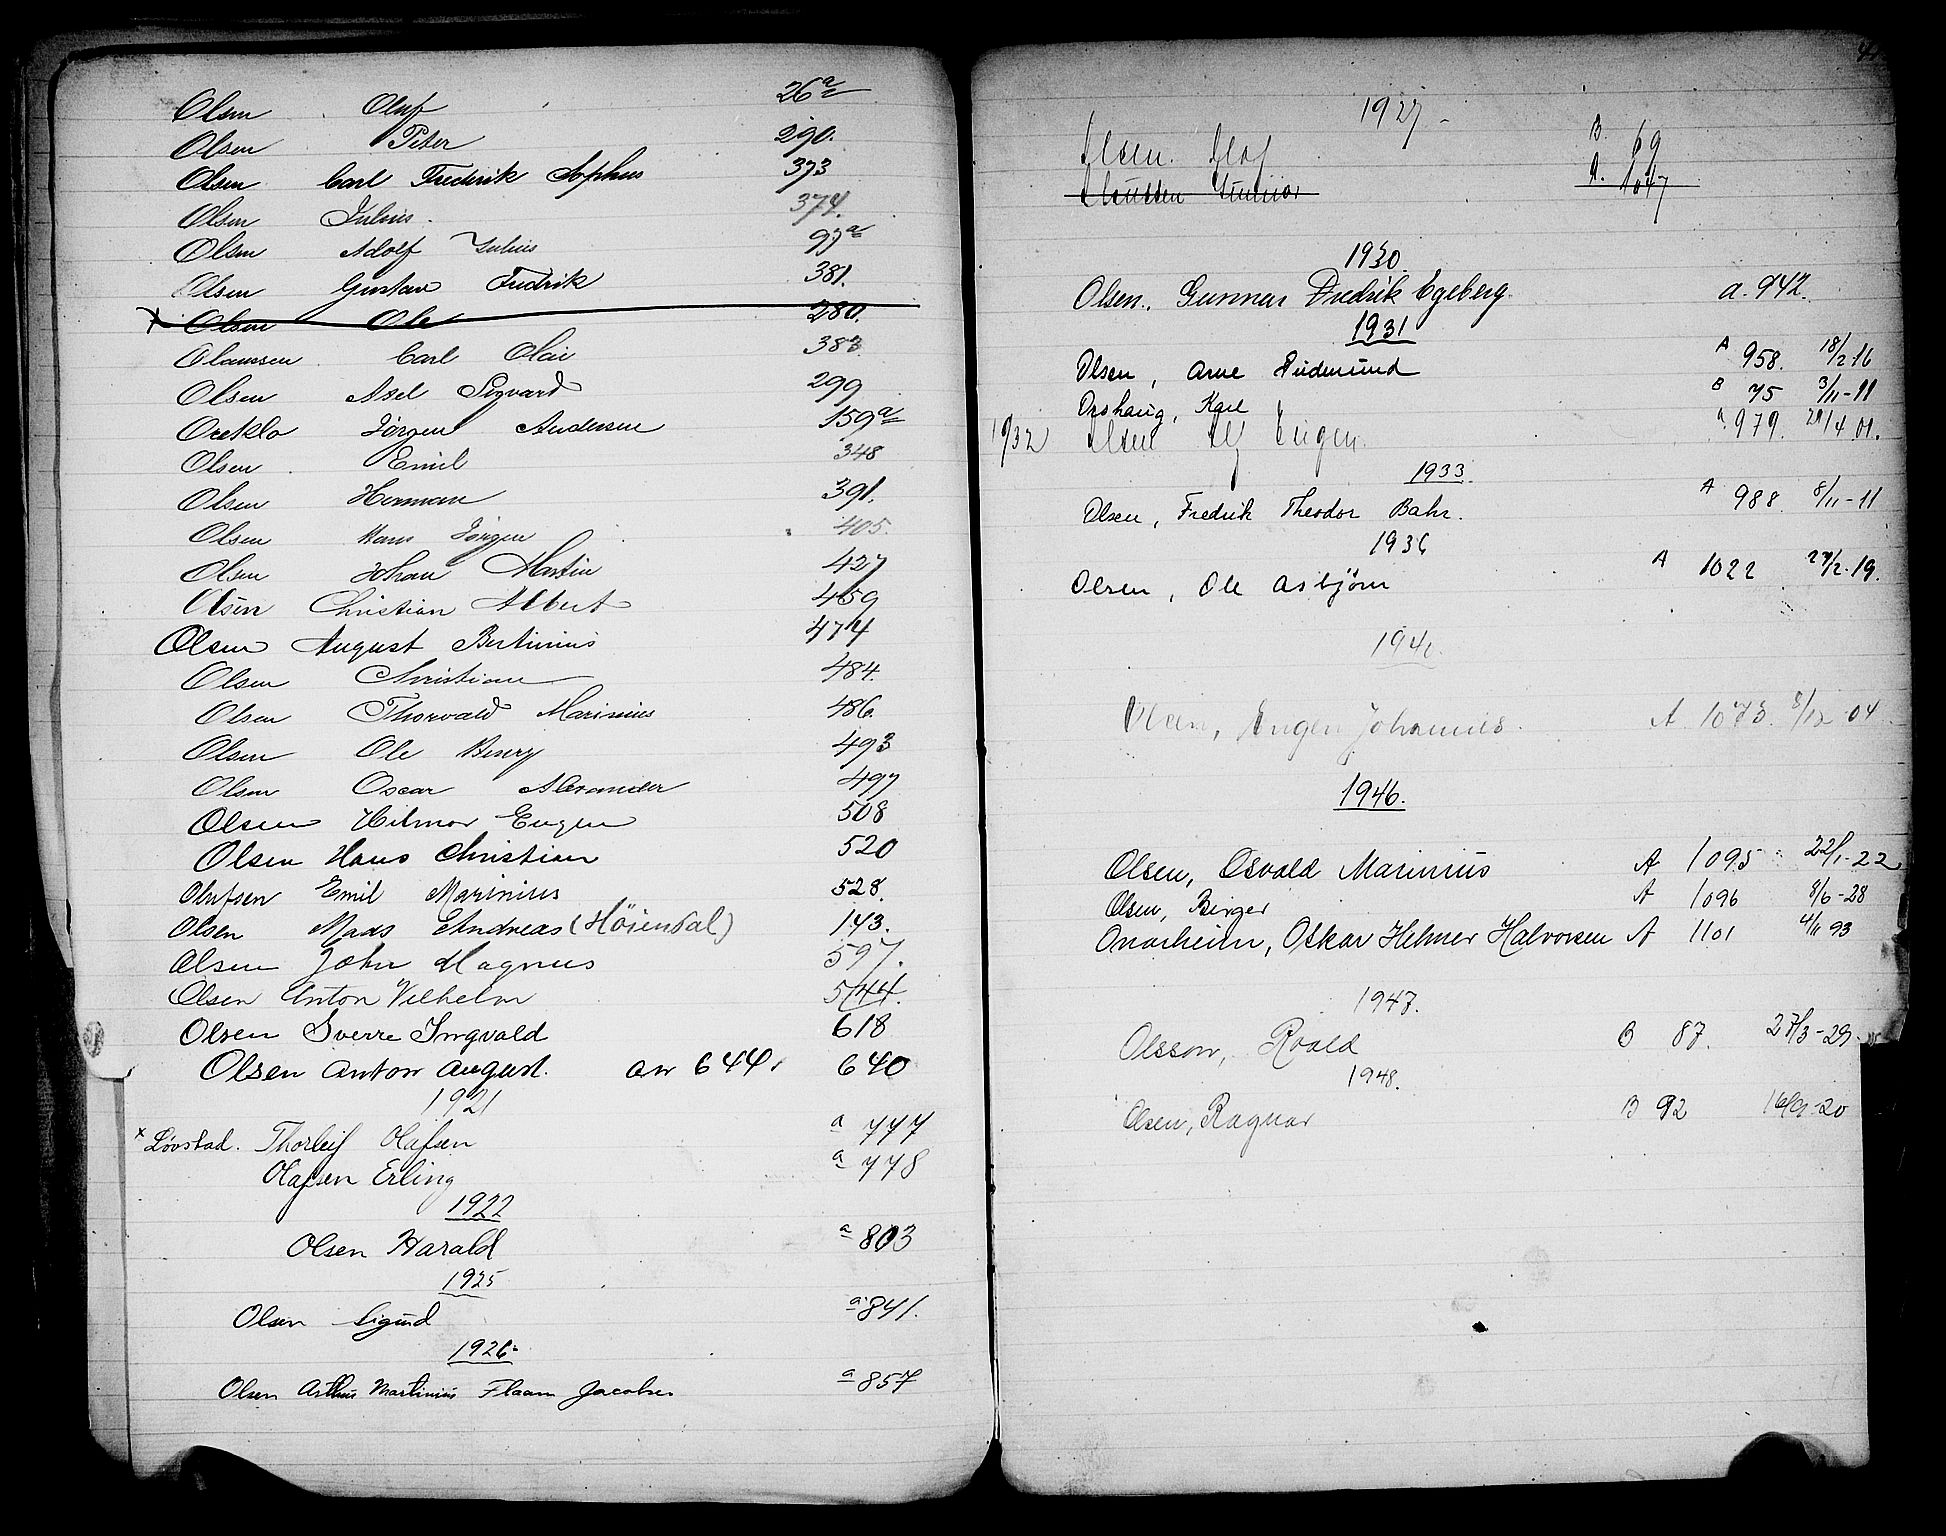 Olsen Oluf 26a
Olsen Peter 290.
Olsen Carl Fredrik Sophus 373
Olsen Julius. 374.
Olsen Adolf Julius 97a
Olsen Gustav Fredrik 381.
x Olsen Ole 280.
Olaussen Carl Olai 383.
Olsen Axel Sigvard 299
Oreklo Jørgen Andersen 159a
Olsen Emil 348
Olsen Herman 391.
Olsen Hans Jörgen 405.
Olsen Johan Martin 427
Olsen Christian Albert 459
Olsen August Bertinius 474
Olsen Christian 484.
Olsen Thorvald Marinius 486.
Olsen Ole Berg 493
Olsen Oscar Alexander 497
Olsen Hilmar Eugen 508
Olsen Hans Christian 520
Olufsen Emil Marinius 528.
Olsen Mads Andreas (Höiendal) 143.
Olsen John Magnus 597.
Olsen Anton Vilhelm 544.
Olsen Sverre Ingvald 618
Olsen Anton August. an 644. 640
1921
x Lövstad. Thorleif Olafsen a 777
Olafsen Erling a 778
1922
Olsen Harald a 803
1925
Olsen Sigurd a 841.
1926
Olsen Arthur Martinius Flaam Jacobsen a 857
1927
Olsen. Olaf B 69
Gunnar a. 1047
1930.
Olsen. Gunnar Fredrik Egeberg a. 942.
1931
Olsen, Arne A 958. 18/2-16
Oshaug, Karl B 75 3/11-11
1932 Olsen Eugen. a 979. 4 01.
1933.
Olsen, Fredrik Theodor Bahr. A 988 8/11-11
1936
Olsen, Ole Asbjörn A 1022 2-19.
194
Olsen, Eugen Johannes. A 1073. 8/12 04
1946.
Olsen, Osvald Marinius A 1095 22/1-22
Olsen, Birger A 1096 8/6-28
Onarheim, Oskar Helmer Halvorsen A 1101 4/11 93
1947.
Olsson, Roald B 87. 27/3-29
1948.
Olsen, Ragnar B 92 16/9-20